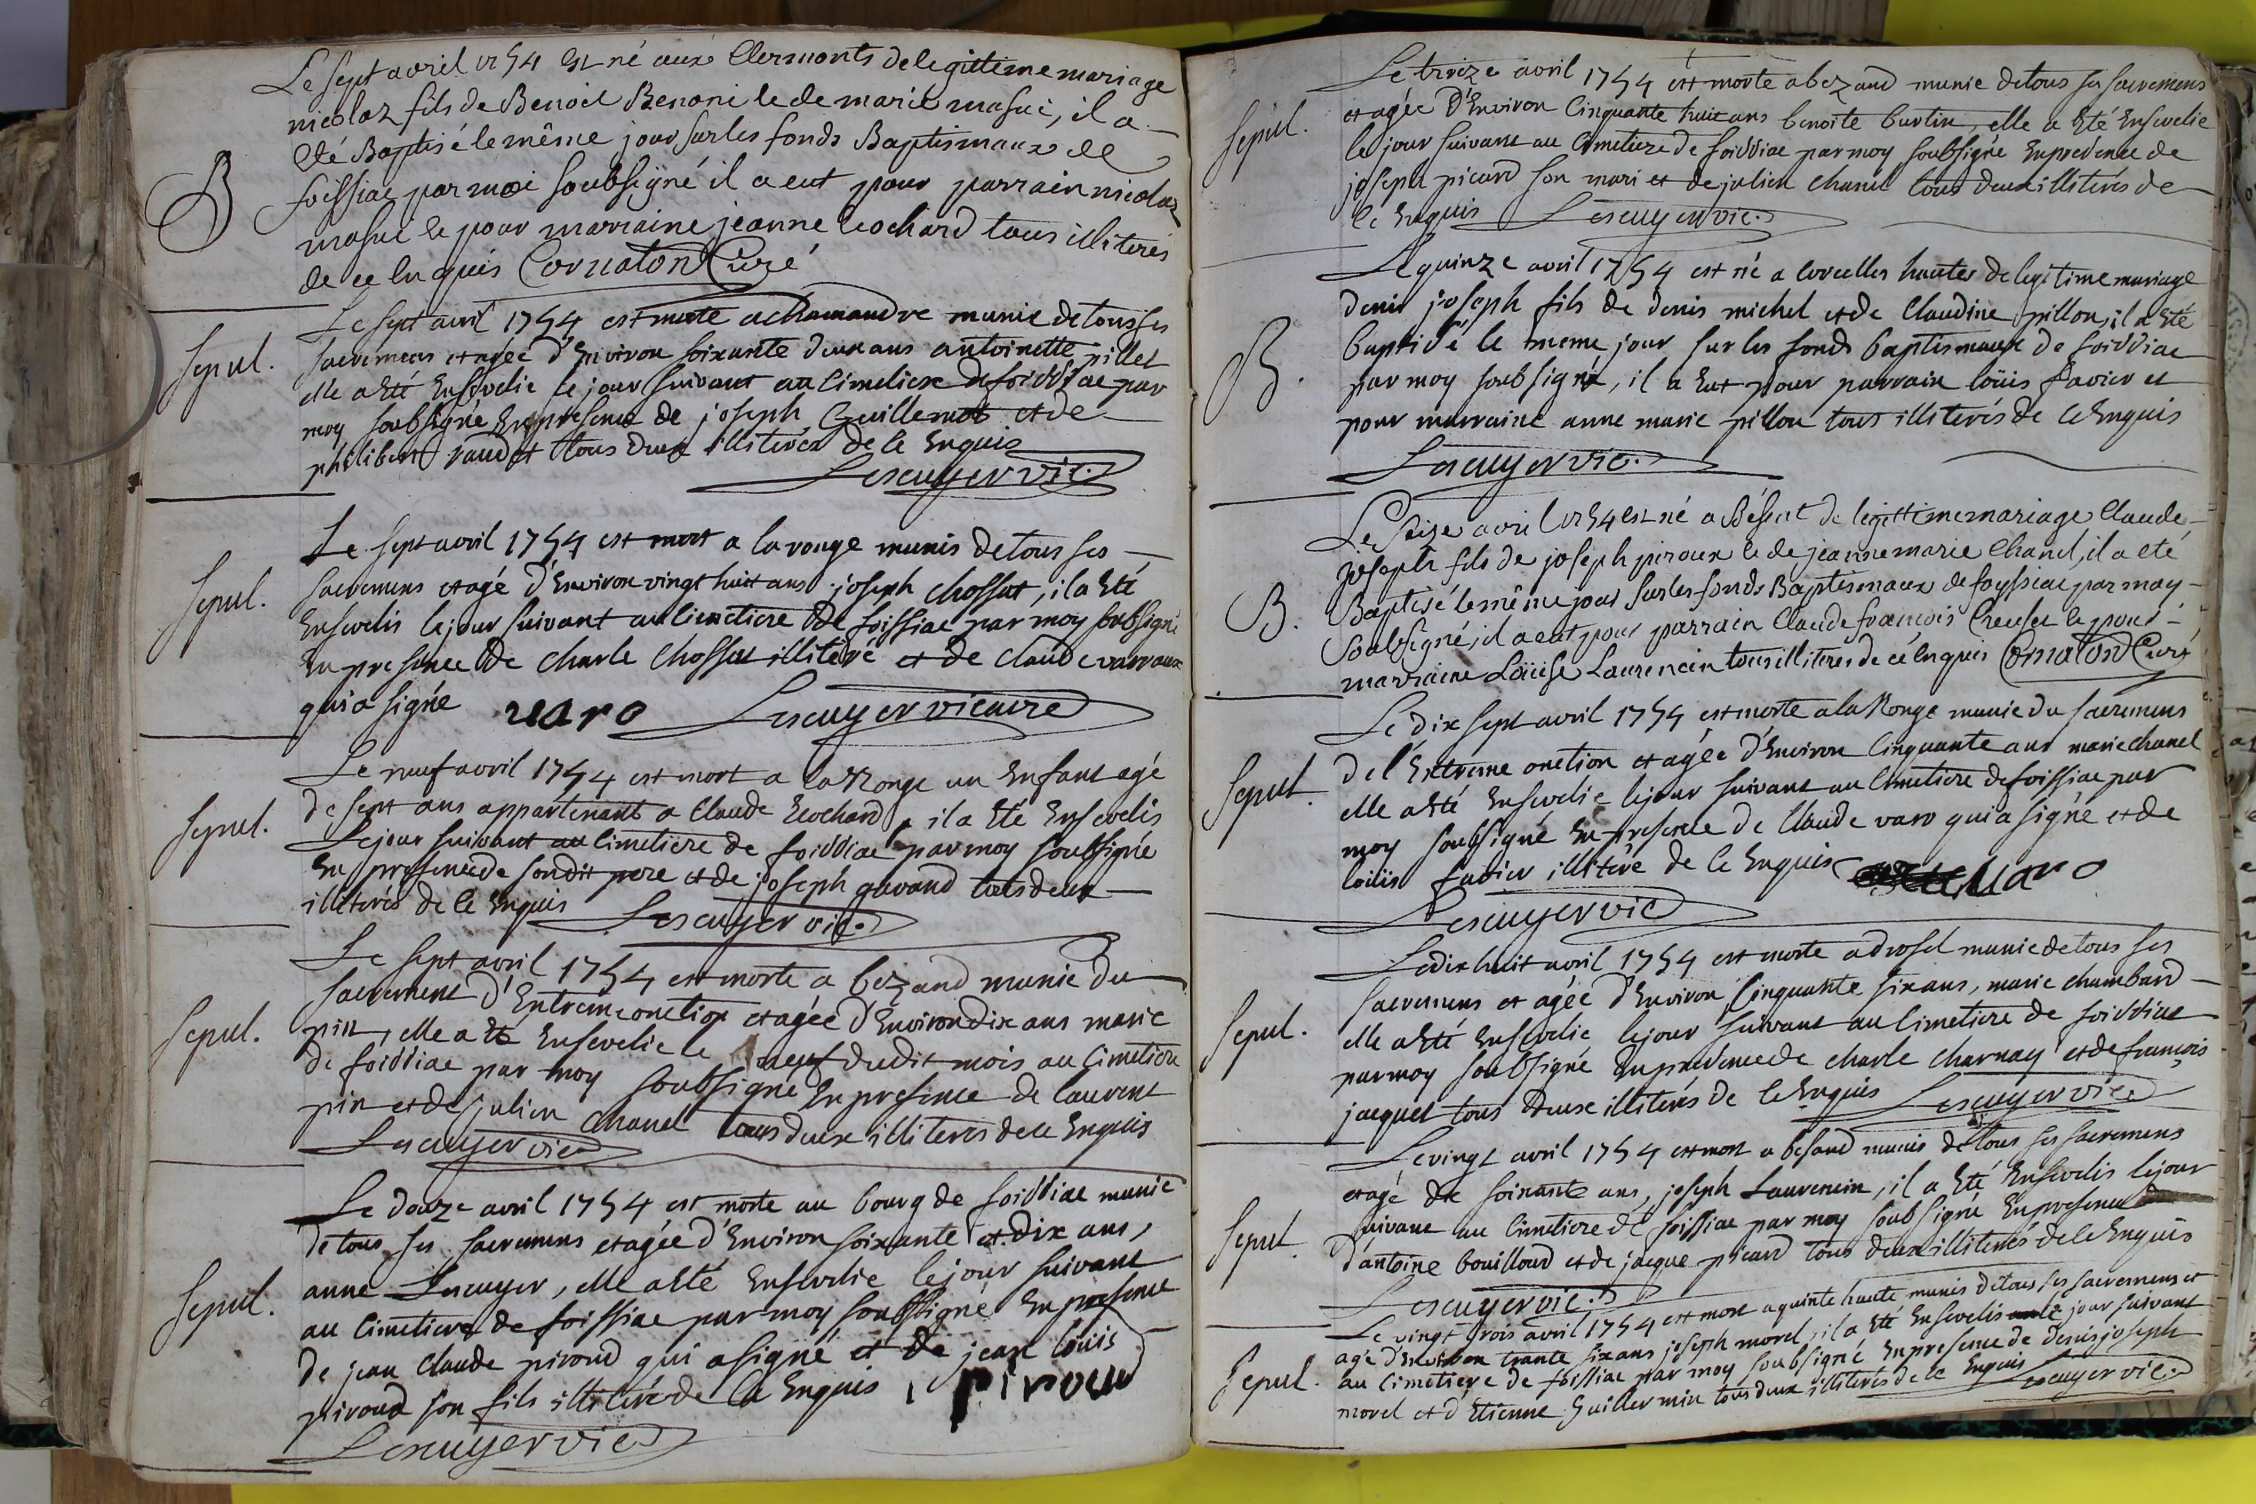 Le sept avril 1754 est né aux Clermonts de legittime mariage
nicolaz fils de Benoit Benoni et de marie masuë, il a
été Baptisé le même jour sur les fonds Baptismaux de
foissiac par moi soubsigné il a eut pour parrain nicolaz
masuë et pour marraine jeanne Cochard tous illiteres
de ce Enquis Cornaton Curé
B
Le sept avril 1754 est morte a chamandre munie de tous ses
sacremens et agée d'Environ soixante deux ans antoinette pillet
elle a Eté Ensevelie le jour suivant au Cimetiere de foissiac par
moy soubsigné En presence de joseph Guillemot et de
philibert vaudet tous deux illiterés de ce Enquis
Lescuyer vic.
Sepul.
Le sept avril 1754 est mort a la rouge munis de tous ses
sacremens et agé d'Environ vingt huit ans joseph chossat, il a Eté
Ensevelis le jour suivant au Cimetiere de foissiac par moy soubsigné
En presence de charle Chossat illiteré et de claude varraux
qui a signé varo Lescuyer vicaire
Sepul.
Le neuf avril 1754 est mort a la Rouge un Enfant agé
de sept ans appartenant a Claude Cochard, il a Eté Ensevelis
Le jour suivant au Cimetiere de foissiac par moy soubsigné
En presence de son dit pere et de joseph gavand tous deux
illiterés de ce Enquis Lescuyer vic.
Sepul.
Le sept avril 1754 est morte a bezand munie du
sacrement d'Extreme onction et agée d'Environ dix ans marie
pin, elle a Eté Ensevelie le neuf dudit mois au Cimetiere
de foissiac par moy soubsigné En presence de laurent
pin et de julien Chanel tous deux illiterés de ce Enquis
Lescuyer vic.
Sepul.
Le douze avril 1754 est morte au bourg de foissiac munie
de tous ses sacremens et agée d'Environ soixante et dix ans,
anne Lescuyer, elle a Eté Ensevelie le jour suivant
au Cimetiere de foissiac par moy soubsigné En presence
de jean Claude piroud qui a signé et de jean louis
piroud son fils illiteré de ce Enquis, piroud
Lescuyer vic.
Sepul.
Le treize avril 1754 est morte a bezand munie de tous ses sacremens
et agée d'Environ Cinquante huit ans benoite burtin, elle a Eté Ensevelie
le jour suivant au Cimetiere de foissiac par moy soubsigné En presence de
joseph picard son mari et de julien chanel tous deux illiterés de
ce Enquis Lescuyer vic.
Sepul.
Le quinze avril 1754 est né a Corcelles hautes de legitime mariage
denis joseph fils de denis michel et de Claudine pillon, il a Eté
baptisé le meme jour sur les fonds baptismaux de foissiac
par moy soubsigné, il a Eut pour parrain loüis favier et
pour marraine anne marie pillon tous illiterés de ce Enquis
Lescuyer vic.
B.
Le seize avril 1754 est né a Béseut de legittime mariage Claude
joseph fils de joseph piroux et de jeanne marie Chanel, il a eté
Baptisé le même jour sur les fonds Baptismaux de foyssiac par moy
soubsigné, il a eut pour parrain Claude francois Creuset et pour
marraine Loüise Laurencin tous illiteres de cé Enquis Cornaton Curé
B.
Le dix sept avril 1754 est morte a la Rouge munie du sacremens
de l'Extreme onction et agée d'Environ Cinquante ans marie chanel
elle a Eté Ensevelie le jour suivant au Cimetiere de foissiac par
moy soubsigné En presence de Claude varo qui a signé et de
loüis favier illiteré de ce Enquis varo
Lescuyer vic
Sepul.
Le dix huit avril 1754 est morte a drosel munie de tous ses
sacremens et agée d'Environ Cinquante six ans, marie chambard
elle a Eté Ensevelie le jour suivant au Cimetiere de foissiac
par moy soubsigné En presence de charle charnay et de françois
jacquet tous deux illiterés de ce Enquis Lescuyer vic.
Sepul.
Le vingt avril 1754 est mort a besand munis de tous ses sacremens
et agé de soixante ans, joseph Laurencin, il a Eté Ensevelis le jour
suivant au Cimetiere de foissiac par moy soubsigné En presence
d'antoine bouilloud et de jacque picard tous deux illiterés de ce Enquis
Lescuyer vic.
Sepul.
Le vingt trois avril 1754 est mort a quinte haute munis de tous ses sacremens et
agé d'Environ trante six ans joseph morel, il a Eté Ensevelis le jour suivant
au Cimetiere de foissiac par moy soubsigné En presence de denis joseph
morel et d'Etienne Guillermin tous deux illiterés de ce Enquis Lescuyer vic.
Sepul.